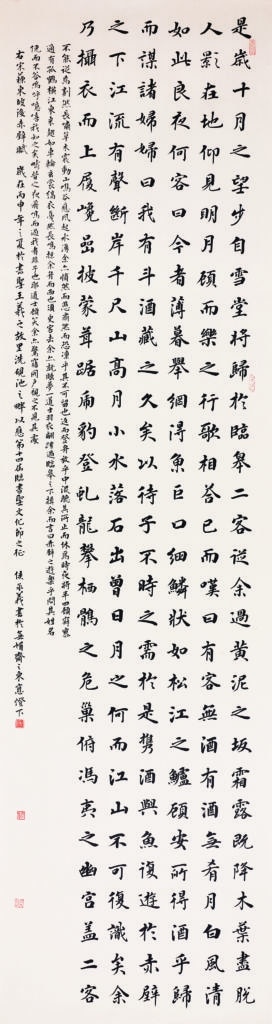 是歲十月之望步自雪堂將歸於臨皋二客從余過黃泥之坂霜露既降木葉盡脫
人影在地仰見明月顧而樂之行歌相答已而嘆曰有客無酒有酒無肴月白風清
如此良夜何客曰今者薄暮舉網得魚巨口細鱗狀如松江之鱸顧安所得酒乎歸
而謀諸婦婦曰我有斗酒藏之久矣以待子不時之需於是攜酒與魚復遊於赤壁
之下江流有聲斷岸千尺山高月小水落石出曾日月之何而江山不可復識矣余
乃攝衣而上履巉喦披蒙茸踞虎豹登虬龍攀栖鶻之危巢俯馮夷之幽宮蓋二客
不能從焉劃然長嘯草木震動山鳴谷應風起水湧余亦悄然而悲肅然而恐凜乎其不可留也返而登舟放乎中流聽其所止而休焉時夜將半四顧寂寥
適有孤鶴橫江東來翅如車輪玄裳縞衣戛然長鳴掠余舟而西也須臾客去余亦就睡夢一道士羽衣翩躚過臨皋之下揖余而言曰赤壁之遊樂乎問其姓名
俛而不答嗚呼噫嘻我知之矣疇昔之夜飛鳴而過我者非子也耶道士顧笑余亦驚寤開戶視之不見其處
右宋蘇東坡後赤壁賦 歲在丙申年之夏於書聖王羲之故里洗硯池之畔以應第十四屆臨書聖文化節之征 侯承義書於齋之東窗燈下